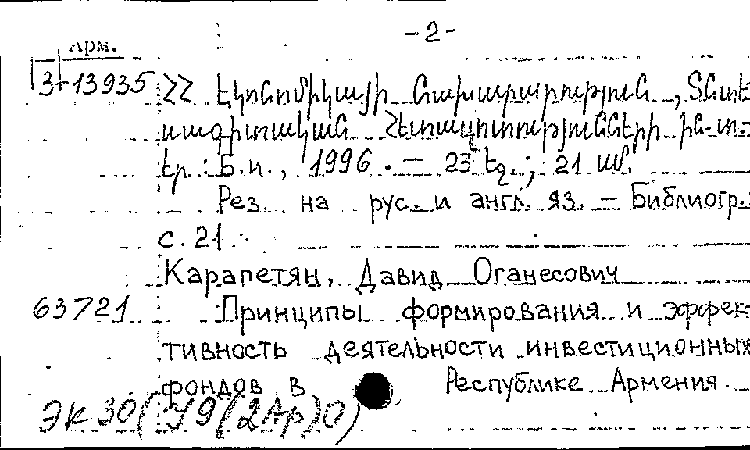 -2-
Арм.
3+13935 ՀՀ Էկոնոմիկայի նախարարություն, Տնտե
սագիտական Հետազոտությունների ին-տ.
Եր.: Б.и., 1996. — 23 էջ.; 21 սմ.
Рез. на рус. и англ. яз. — Библиогр.:
с. 21.
Карапетян, Давид Оганесович
63721 Принципы формирования и эффек
тивность деятельности инвестиционных
фондов в Республике Армения.
ЭК30(У9(2Ар)0)